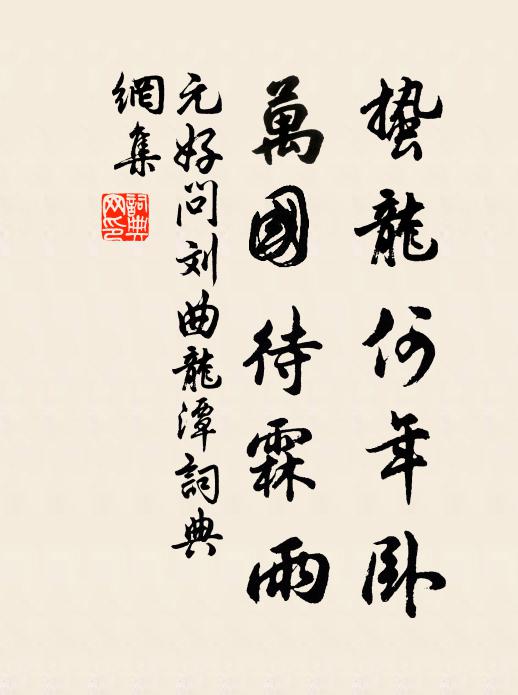 蛰龍何年卧
萬國待霖雨
元好问刘曲龍潭詞典
網集
詞典
网印